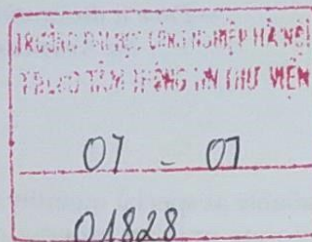 TRƯỜNG ĐẠI HỌC CÔNG NGHIỆP HÀ NỘI
TRUNG TÂM THÔNG TIN THƯ VIỆN
07 - 07
01828